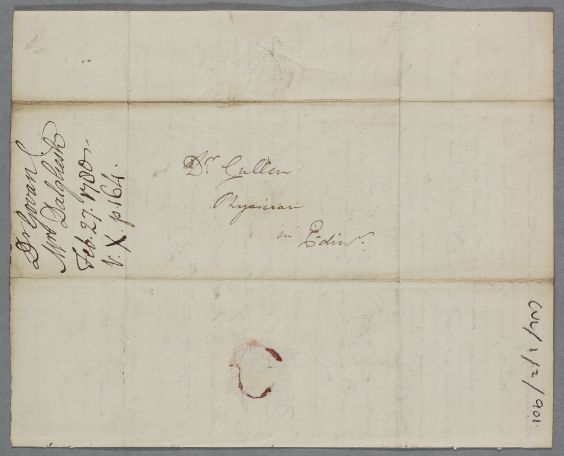 Dr. Cullen
Physician
in Edinr.
Dr Govan
Mrs Dalgliesh
Feb. 27. 1780.
V. X. p164.
CUL/1/2/901